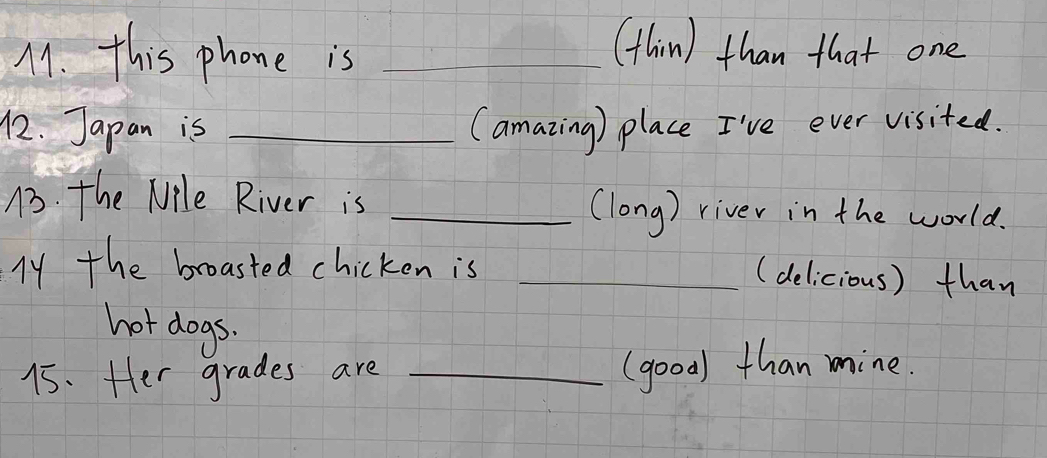 11. This phone is __________ (thin) than that one
12. Japan is __________ (amazing) place I've ever visited.
13. The Nile River is __________ (long) river in the world.
14 The broasted chicken is __________ (delicious) than
hot dogs.
15. Her grades are __________ (good) than mine.